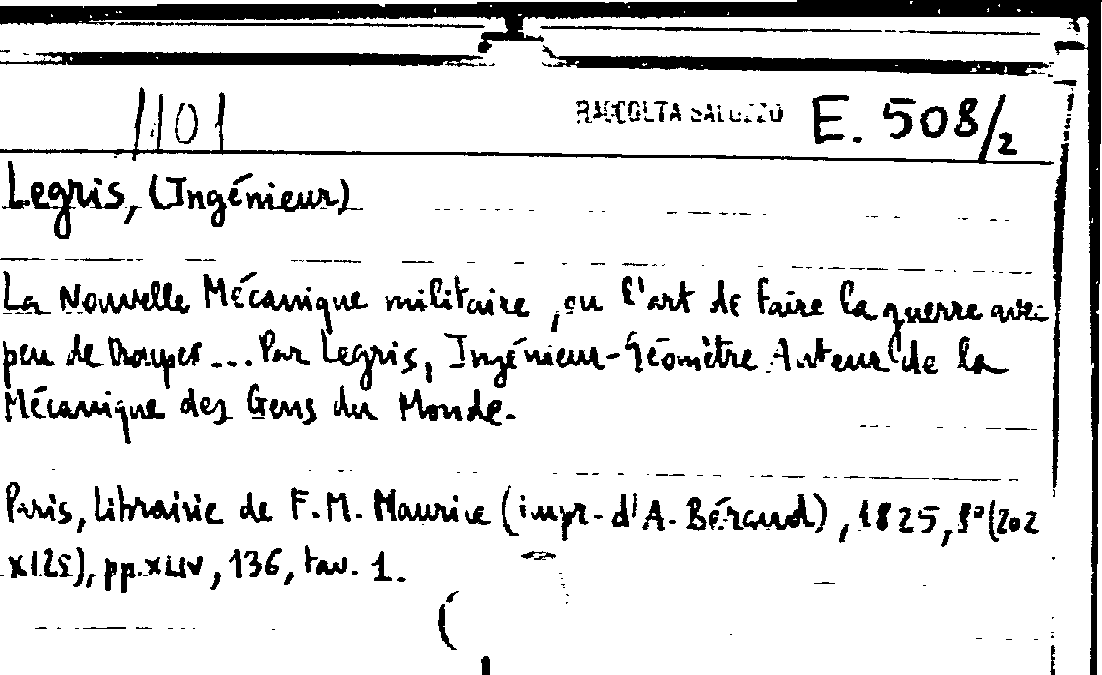 1101 RACCOLTA SALUZZO E. 508/2
Legris, (Ingénieur)
La Nouvelle Mécanique militaire, ou l'art de faire la guerre avec
peu de troupes... Par Legris, Ingénieur-Géomètre Auteur de la
Mécanique des Gens du Monde.
Paris, Librairie de F.M. Maurice (impr. d'A. Béraud), 1825, 8° (202
x125), pp. XLIV, 136, tav. 1.